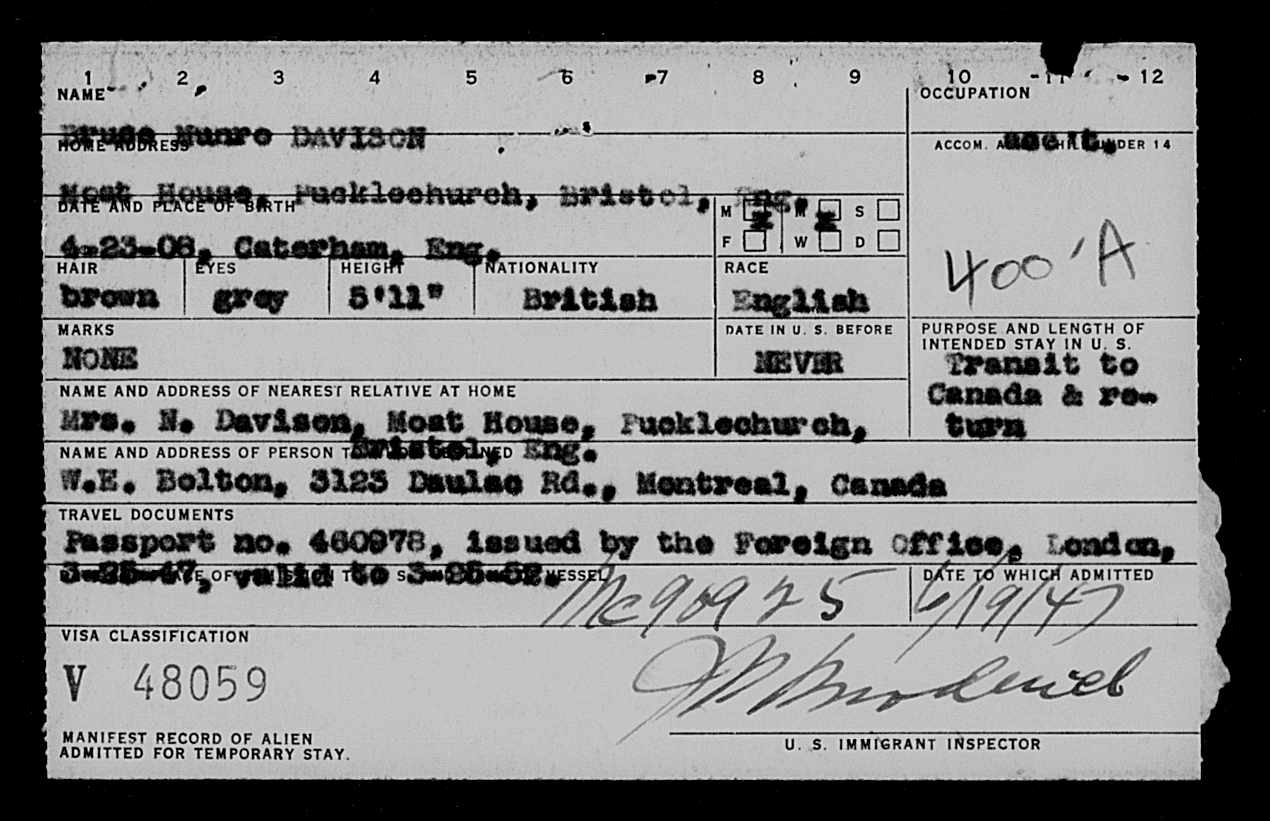 1 2 3 4 5 6 7 8 9 10 11 12
NAME OCCUPATION
Bruce Munro DAVISON acc't.
HOME ADDRESS ACCOM. UNDER 14
Moat House, Pucklechurch, Bristol, Eng.
DATE AND PLACE OF BIRTH M x M x S
4-23-08, Caterham, Eng. F W D
400 'A
HAIR EYES HEIGHT NATIONALITY RACE
brown grey 5'11" British English
MARKS DATE IN U. S. BEFORE PURPOSE AND LENGTH OF
INTENDED STAY IN U. S.
NONE NEVER Transit to
Canada & re-
turn
NAME AND ADDRESS OF NEAREST RELATIVE AT HOME
Mrs. N. Davison, Moat House, Pucklechurch,
Bristol, Eng.
NAME AND ADDRESS OF PERSON
W.E. Bolton, 3123 Daulac Rd., Montreal, Canada
TRAVEL DOCUMENTS
Passport no. 460978, issued by the Foreign Office, London,
3-25-47, valid to 3-25-52.
VESSEL DATE TO WHICH ADMITTED
Nc90925 6/19/47
VISA CLASSIFICATION
V 48059
MANIFEST RECORD OF ALIEN
ADMITTED FOR TEMPORARY STAY.
U. S. IMMIGRANT INSPECTOR